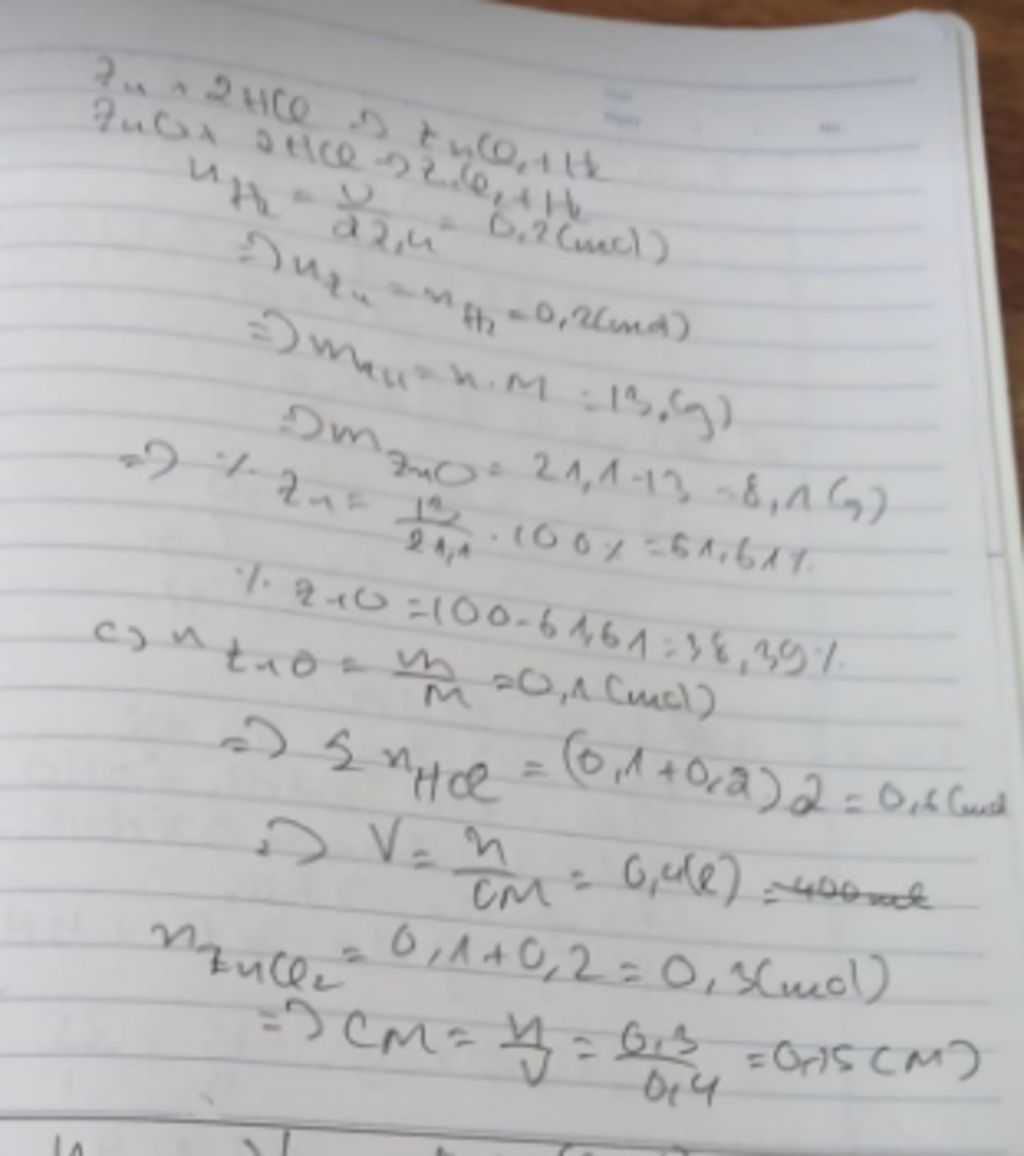 Zn + 2HCl => ZnCl₂ + H₂
ZnO + 2HCl => ZnCl₂ + H₂
n H₂ = V/22,4 = 0,2(mol)
=> n Zn = n H₂ = 0,2(mol)
=> m Zn = n.M = 13(g)
=> m ZnO = 21,1-13 = 8,1(g)
=> % Zn = 13/21,1 . 100% = 61,61%
% ZnO = 100-61,61 = 38,39%
c) n ZnO = m/M = 0,1(mol)
=> Σ n HCl = (0,1+0,2)2 = 0,6(mol
=> V = n/CM = 0,4(l) = 400ml
n ZnCl₂ = 0,1+0,2 = 0,3(mol)
=> CM = n/V = 0,3/0,4 = 0,75(M)